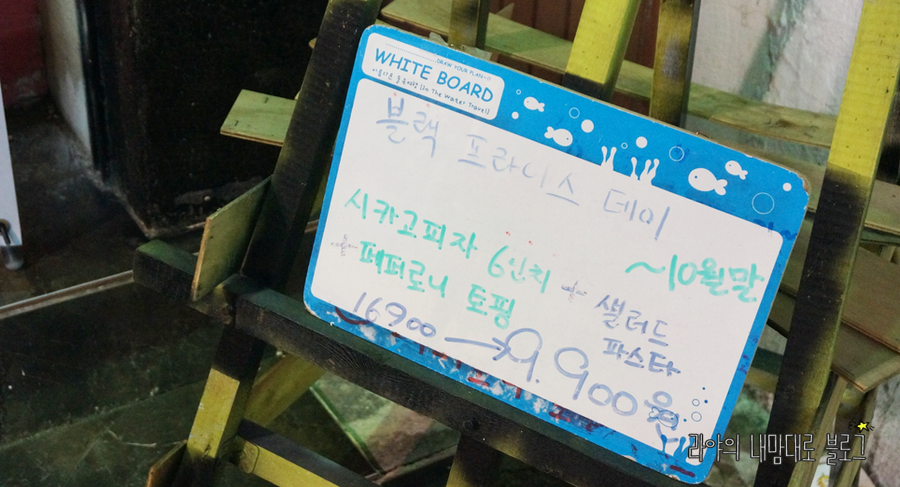 DRAW YOUR PLAN
WHITE BOARD
아름다운 물속여행 (In The Water Travel)
블랙 프라이스 데이
~10월말
시카고피자 6인치 + 샐러드
+ 페퍼로니 토핑 파스타
16900 → 9.900원
라야의 내맘대로 블로그